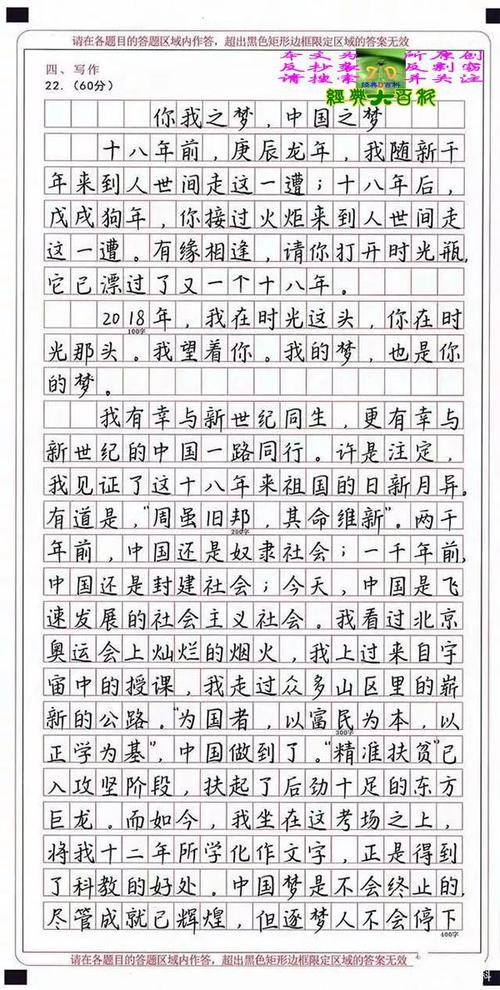 请在各题目的答题区域内作答，超出黑色矩形边框限定区域的答案无效
本文为 所原创
反抄袭 反剽窃
请搜索 并关注
经典D百科
經典大百純
四、写作
22.（60分）
你我之梦，中国之梦
十八年前，庚辰龙年，我随新千
年来到人世间走这一遭；十八年后，
戊戌狗年，你接过火炬来到人世间走
这一遭。有缘相逢，请你打开时光瓶，
它已漂过了又一个十八年。
2018年，我在时光这头，你在时
100字
光那头。我望着你。我的梦，也是你
的梦。
我有幸与新世纪同生，更有幸与
新世纪的中国一路同行。许是注定，
我见证了这十八年来祖国的日新月异。
有道是，“周虽旧邦，其命维新”。两千
200字
年前，中国还是奴隶社会；一千年前，
中国还是封建社会；今天，中国是飞
速发展的社会主义社会。我看过北京
奥运会上灿烂的烟火，我上过来自宇
宙中的授课，我走过众多山区里的崭
新的公路。“为国者，以富民为本，以
300字
正学为基”，中国做到了。“精准扶贫”已
入攻坚阶段，扶起了后劲十足的东方
巨龙。而如今，我坐在这考场之上，
将我十二年所学化作文字，正是得到
了科教的好处。中国梦是不会终止的，
尽管成就已辉煌，但逐梦人不会停下
400字
请在各题目的答题区域内作答，超出黑色矩形边框限定区域的答案无效